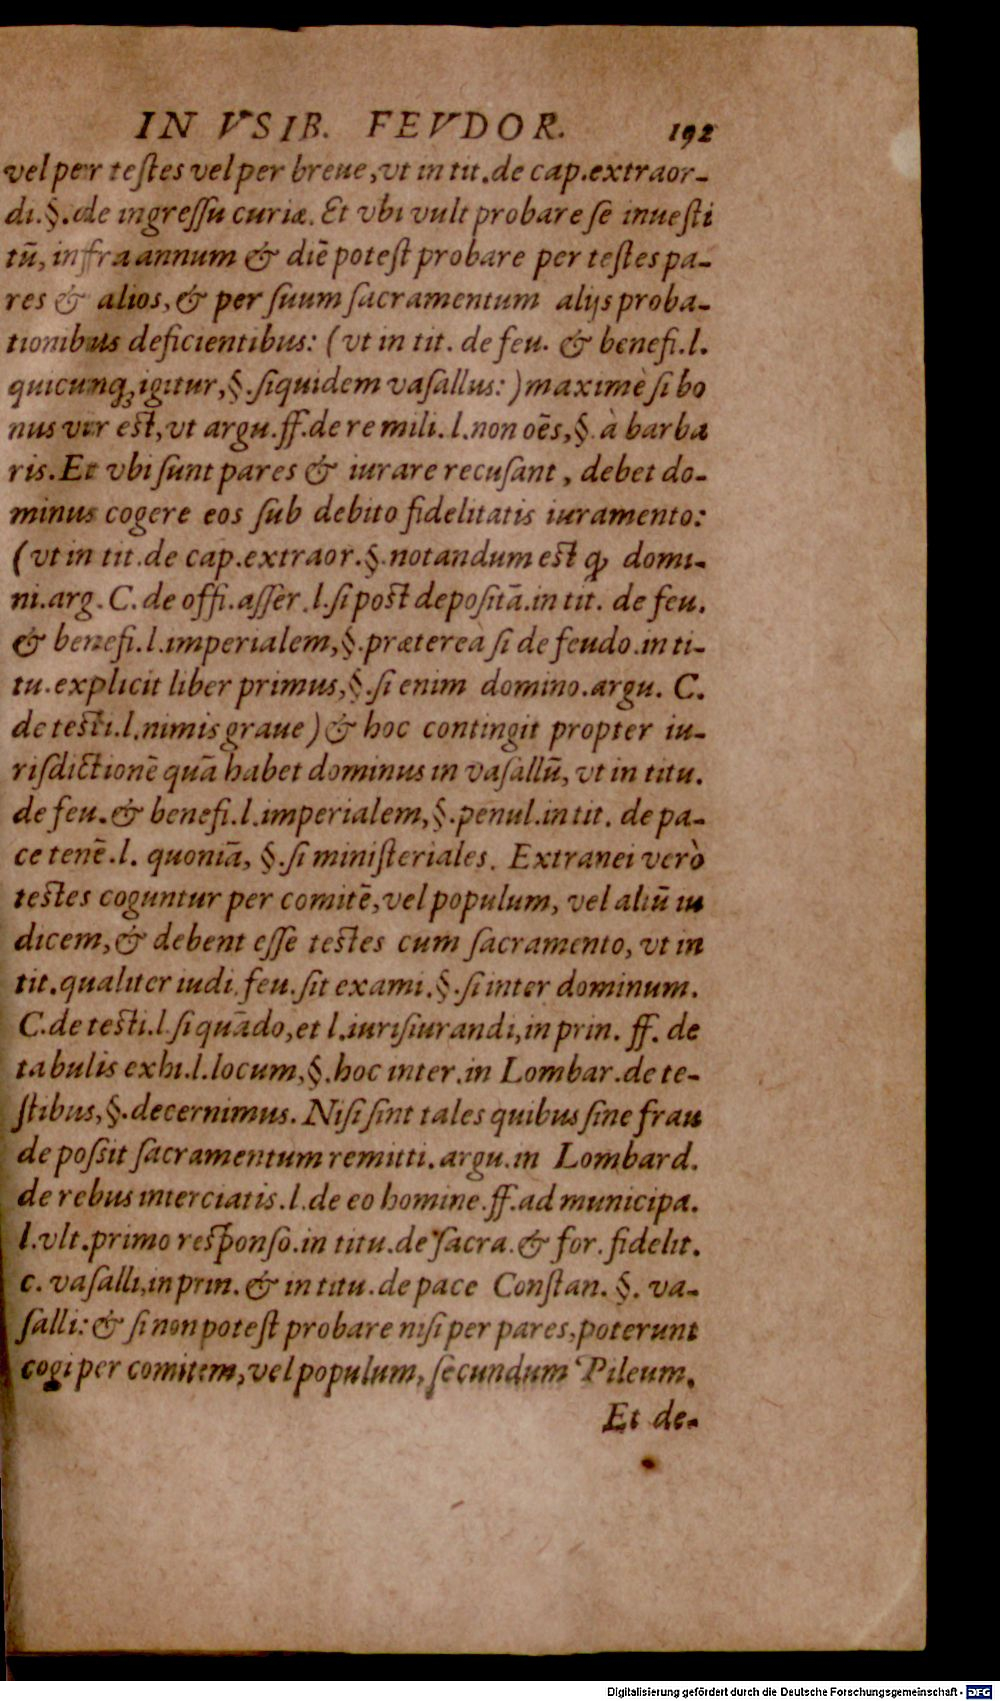 IN VSIB. FEVDOR. 192
vel per teſtes vel per breue, vt in tit. de cap. extraor-
di. §. de ingreſſu curiæ. Et vbi vult probare ſe inueſti
tū, infra annum & diē poteſt probare per teſtes pa-
res & alios, & per ſuum ſacramentum alijs proba-
tionibus deficientibus: (vt in tit. de feu. & benefi. l.
quicunqꝫ igitur, §. ſiquidem vaſallus:) maximè ſi bo
nus vir eſt, vt argu. ff. de re mili. l. non oēs, §. à barba
ris. Et vbi ſunt pares & iurare recuſant, debet do-
minus cogere eos ſub debito fidelitatis iuramento:
(vt in tit. de cap. extraor. §. notandum eſt ꝙ domi-
ni. arg. C. de offi. aſſer. l. ſi poſt depoſitā. in tit. de feu.
& benefi. l. imperialem, §. præterea ſi de feudo. in ti-
tu. explicit liber primus, §. ſi enim domino. argu. C.
de teſti. l. nimis graue) & hoc contingit propter iu-
riſdictionē quā habet dominus in vaſallū, vt in titu.
de feu. & benefi. l. imperialem, §. penul. in tit. de pa-
ce tenē. l. quoniā, §. ſi miniſteriales. Extranei verò
teſtes coguntur per comitē, vel populum, vel aliū iu
dicem, & debent eſſe teſtes cum ſacramento, vt in
tit. qualiter iudi. feu. ſit exami. §. ſi inter dominum.
C. de teſti. l. ſi quādo, et l. iuriſiurandi, in prin. ff. de
tabulis exhi. l. locum, §. hoc inter. in Lombar. de te-
ſtibus, §. decernimus. Niſi ſint tales quibus ſine frau
de poſsit ſacramentum remitti. argu. in Lombard.
de rebus interciatis. l. de eo homine. ff. ad municipa.
l. vlt. primo reſponſo. in titu. de ſacra. & for. fidelit.
c. vaſalli, in prin. & in titu. de pace Conſtan. §. va-
ſalli: & ſi non poteſt probare niſi per pares, poterunt
cogi per comitem, vel populum, ſecundum Pileum.
Et de-
Digitalisierung gefördert durch die Deutsche Forschungsgemeinschaft - DFG